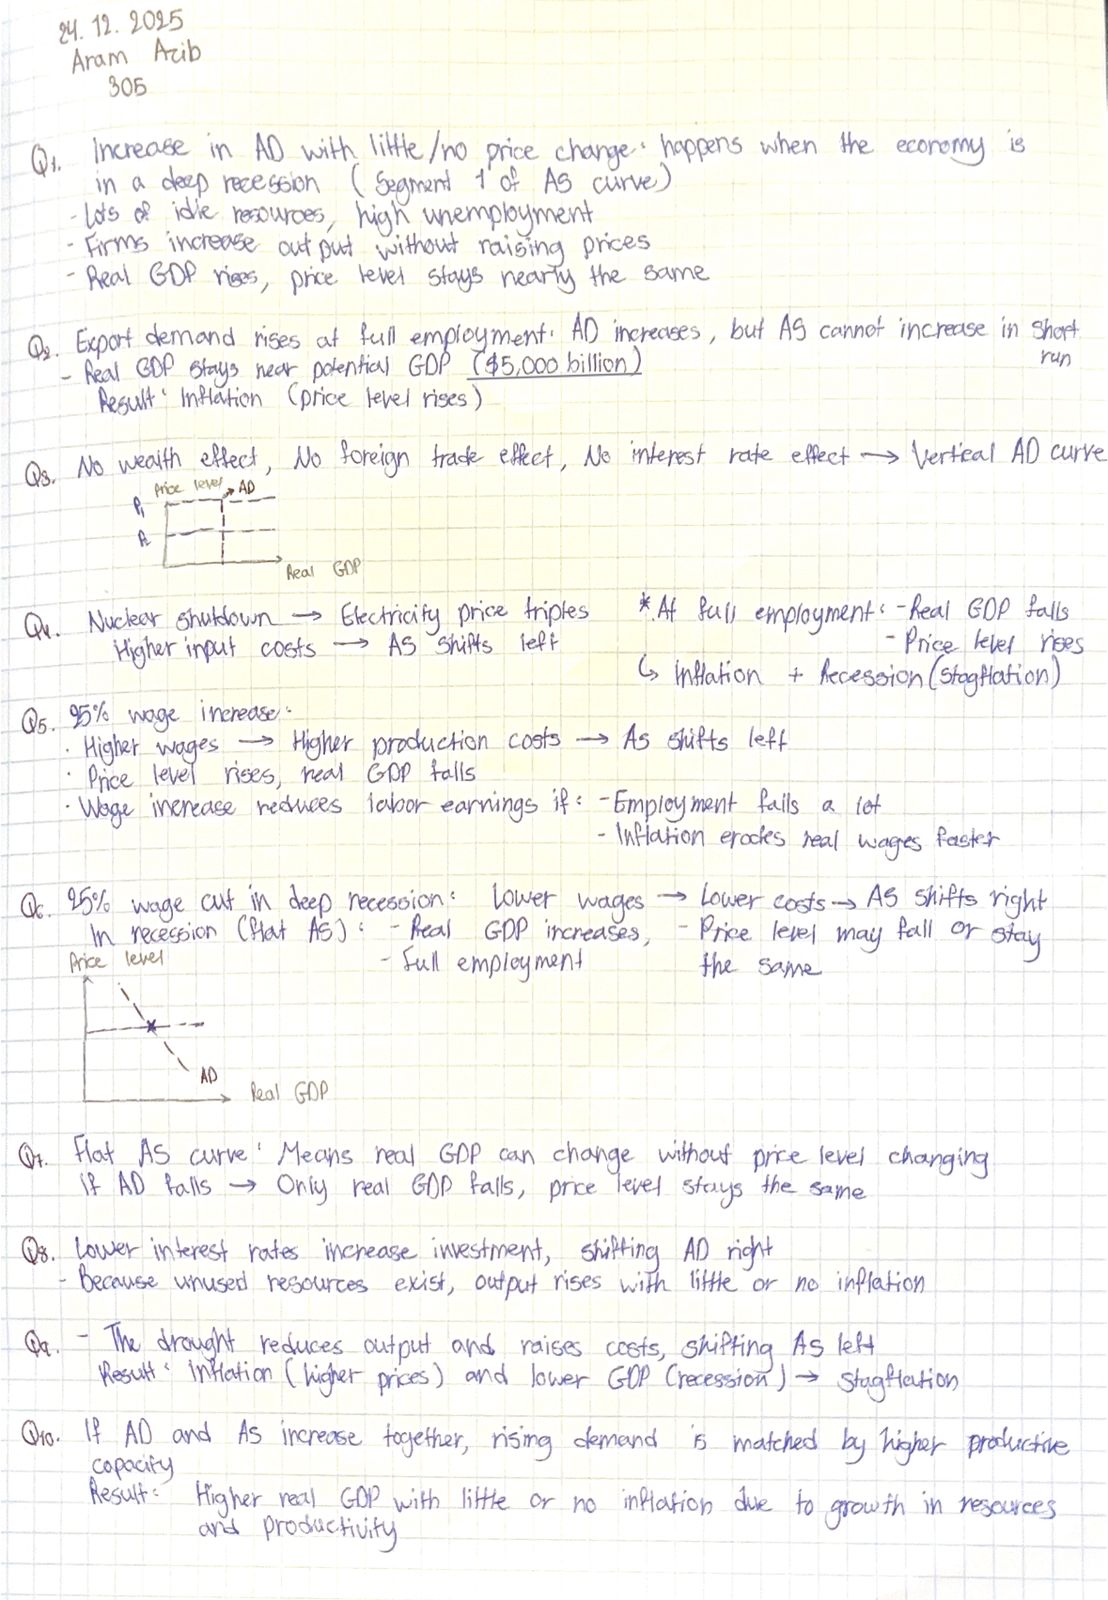 24.12.2025
Aram Azib
305
Q1. Increase in AD with little/no price change: happens when the economy is
in a deep recession (Segment 1 of AS curve)
- Lots of idle resources, high unemployment
- Firms increase output without raising prices
- Real GDP rises, price level stays nearly the same
Q2. Export demand rises at full employment: AD increases, but AS cannot increase in short
run
- Real GDP stays near potential GDP ($5,000 billion)
Result: Inflation (price level rises)
Q3. No wealth effect, No foreign trade effect, No interest rate effect → Vertical AD curve
Price level
AD
P1
Real GDP
Q4. Nuclear shutdown → Electricity price triples
Higher input costs → AS shifts left
* At full employment: - Real GDP falls
- Price level rises
↳ Inflation + Recession (stagflation)
Q5. 25% wage increase:
· Higher wages → Higher production costs → AS shifts left
· Price level rises, real GDP falls
· Wage increase reduces labor earnings if: - Employment falls a lot
- Inflation erodes real wages faster
Q6. 25% wage cut in deep recession: Lower wages → Lower costs → AS shifts right
In recession (flat AS): - Real GDP increases, - Price level may fall or stay
- Full employment the same
Price level
AD
Real GDP
Q7. Flat AS curve: Means real GDP can change without price level changing
if AD falls → Only real GDP falls, price level stays the same
Q8. Lower interest rates increase investment, shifting AD right
- Because unused resources exist, output rises with little or no inflation
Q9. - The drought reduces output and raises costs, shifting AS left
Result: Inflation (higher prices) and lower GDP (recession) → Stagflation
Q10. If AD and AS increase together, rising demand is matched by higher productive
capacity
Result: Higher real GDP with little or no inflation due to growth in resources
and productivity